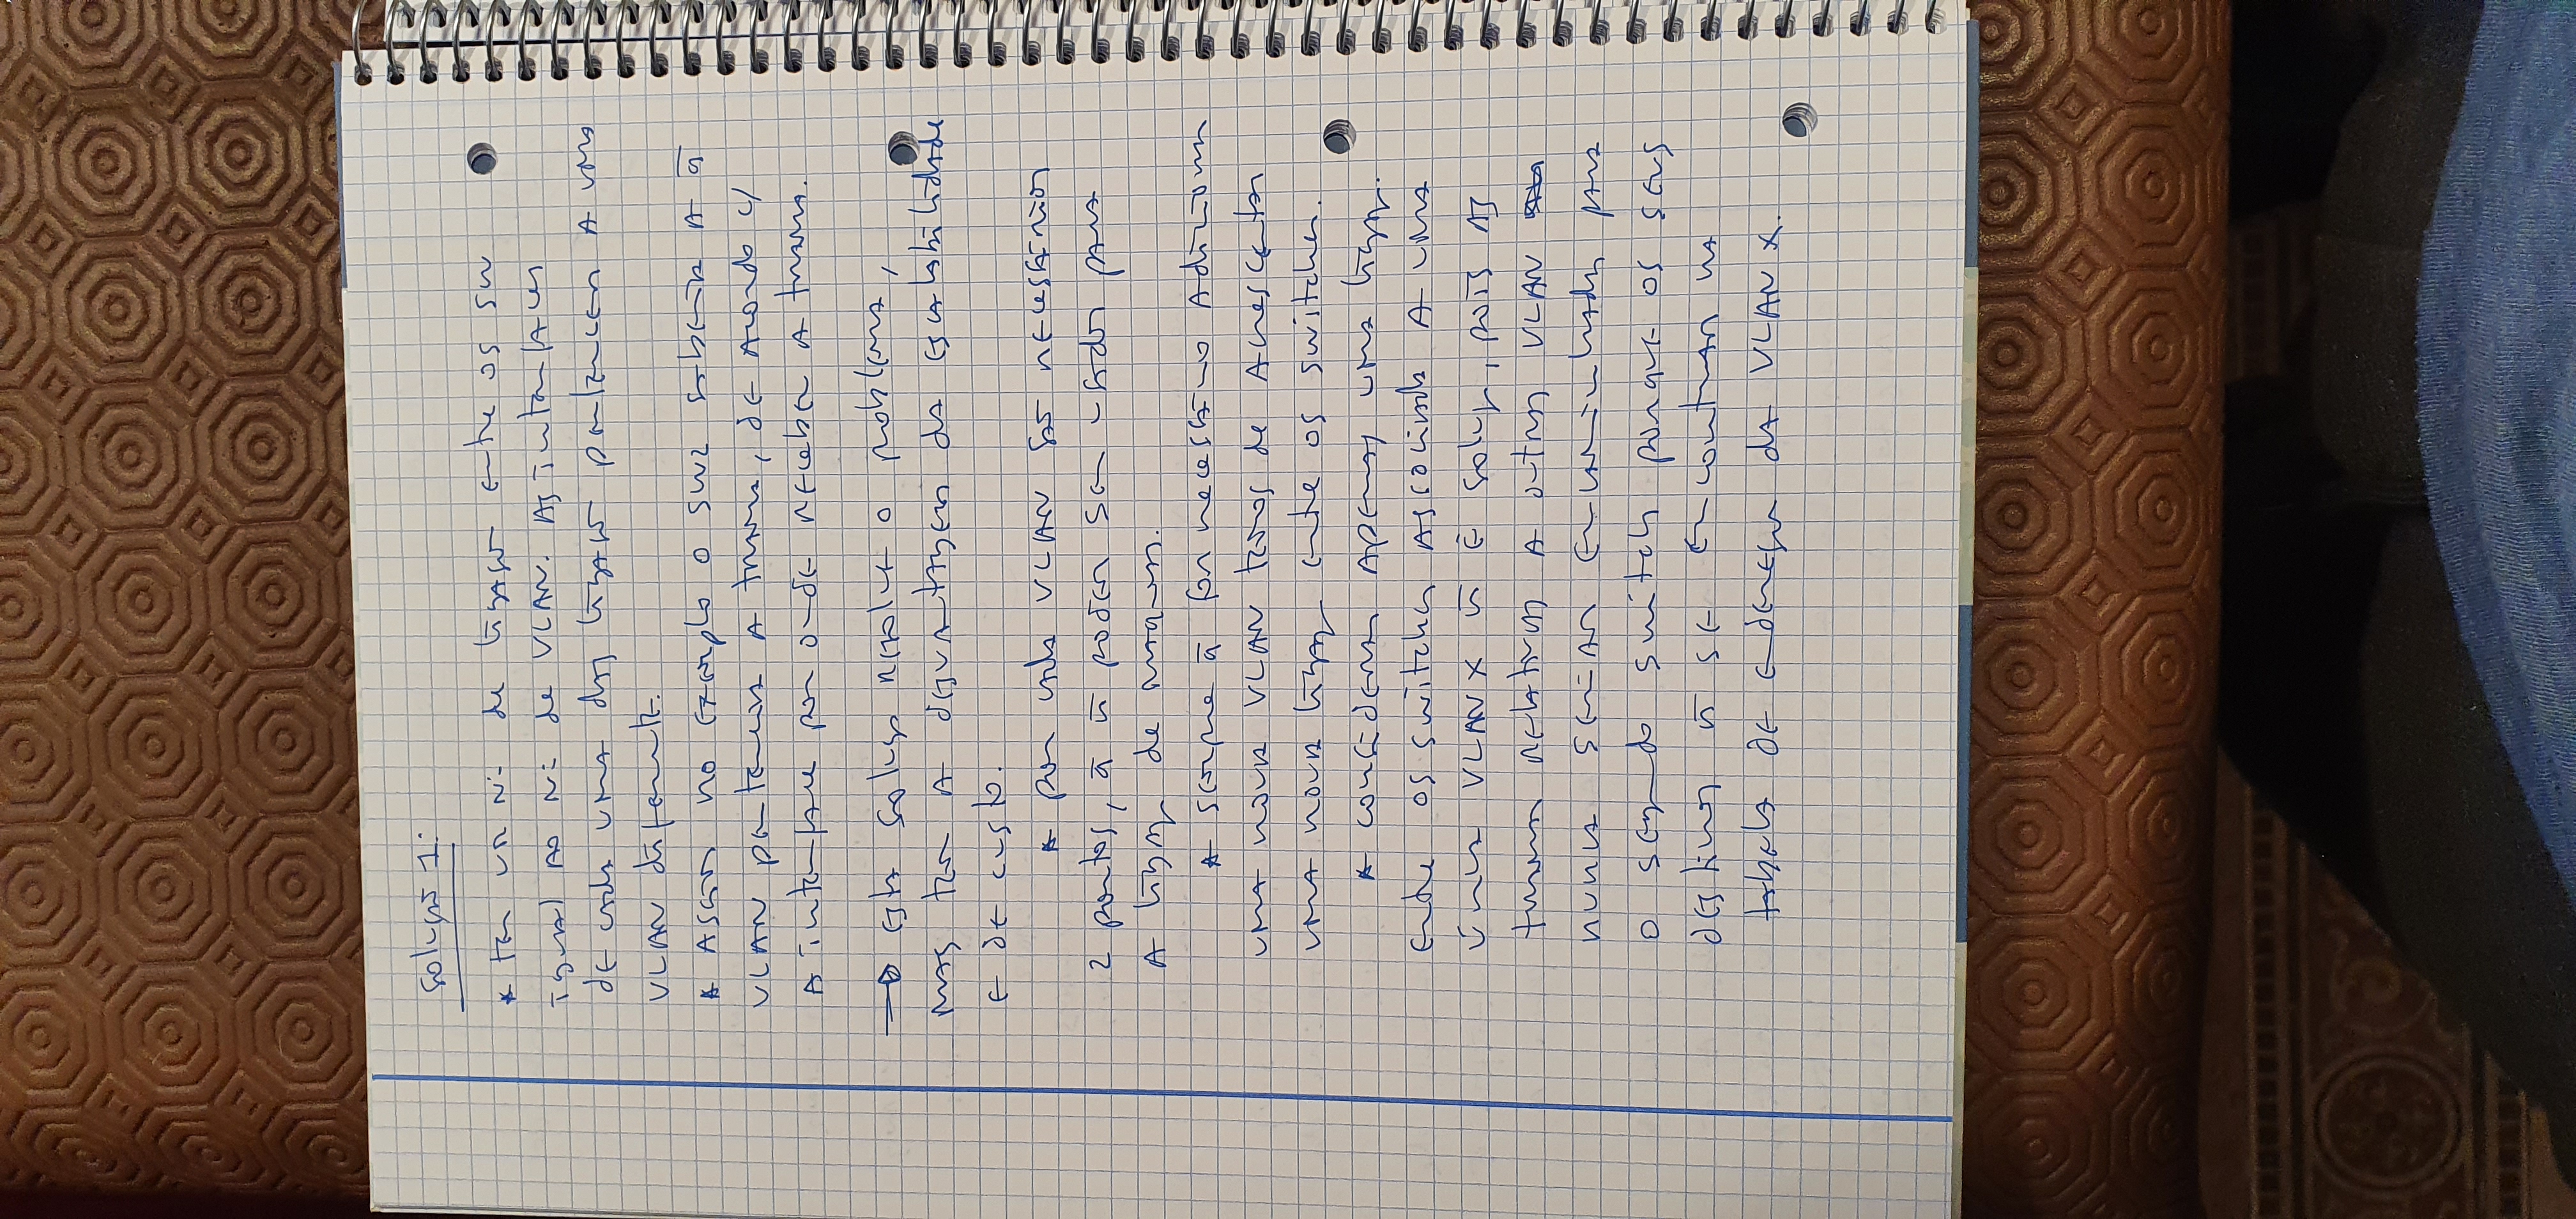 Solução 1:
* Ter um nº de ligações entre os SW
igual ao nº de VLAN. As interfaces
de cada uma das ligações pertencem a uma
VLAN diferente.
* Assim no exemplo o SW2 saberia a q̄
VLAN pertencia a trama, de acordo c/
a interface por onde receber a trama.
→ esta solução resolve o problema,
mas tem a desvantagem da escalabilidade
e de custo.
* por cada VLAN são necessários
2 portos, q̄ ñ podem ser usados para
a ligaç de máquinas.
* sempre q̄ for necessário adicionar
uma nova VLAN temos de acrescentar
uma nova ligaç entre os switches.
* considerar apenas uma ligaç.
entre os switches associada a uma
única VLAN X ñ é soluç, pois as
tramas relativas a outras VLAN
nunca seriam encaminhadas para
o segundo switch porque os seus
destinos ñ se encontram na
tabela de endereços da VLAN X.